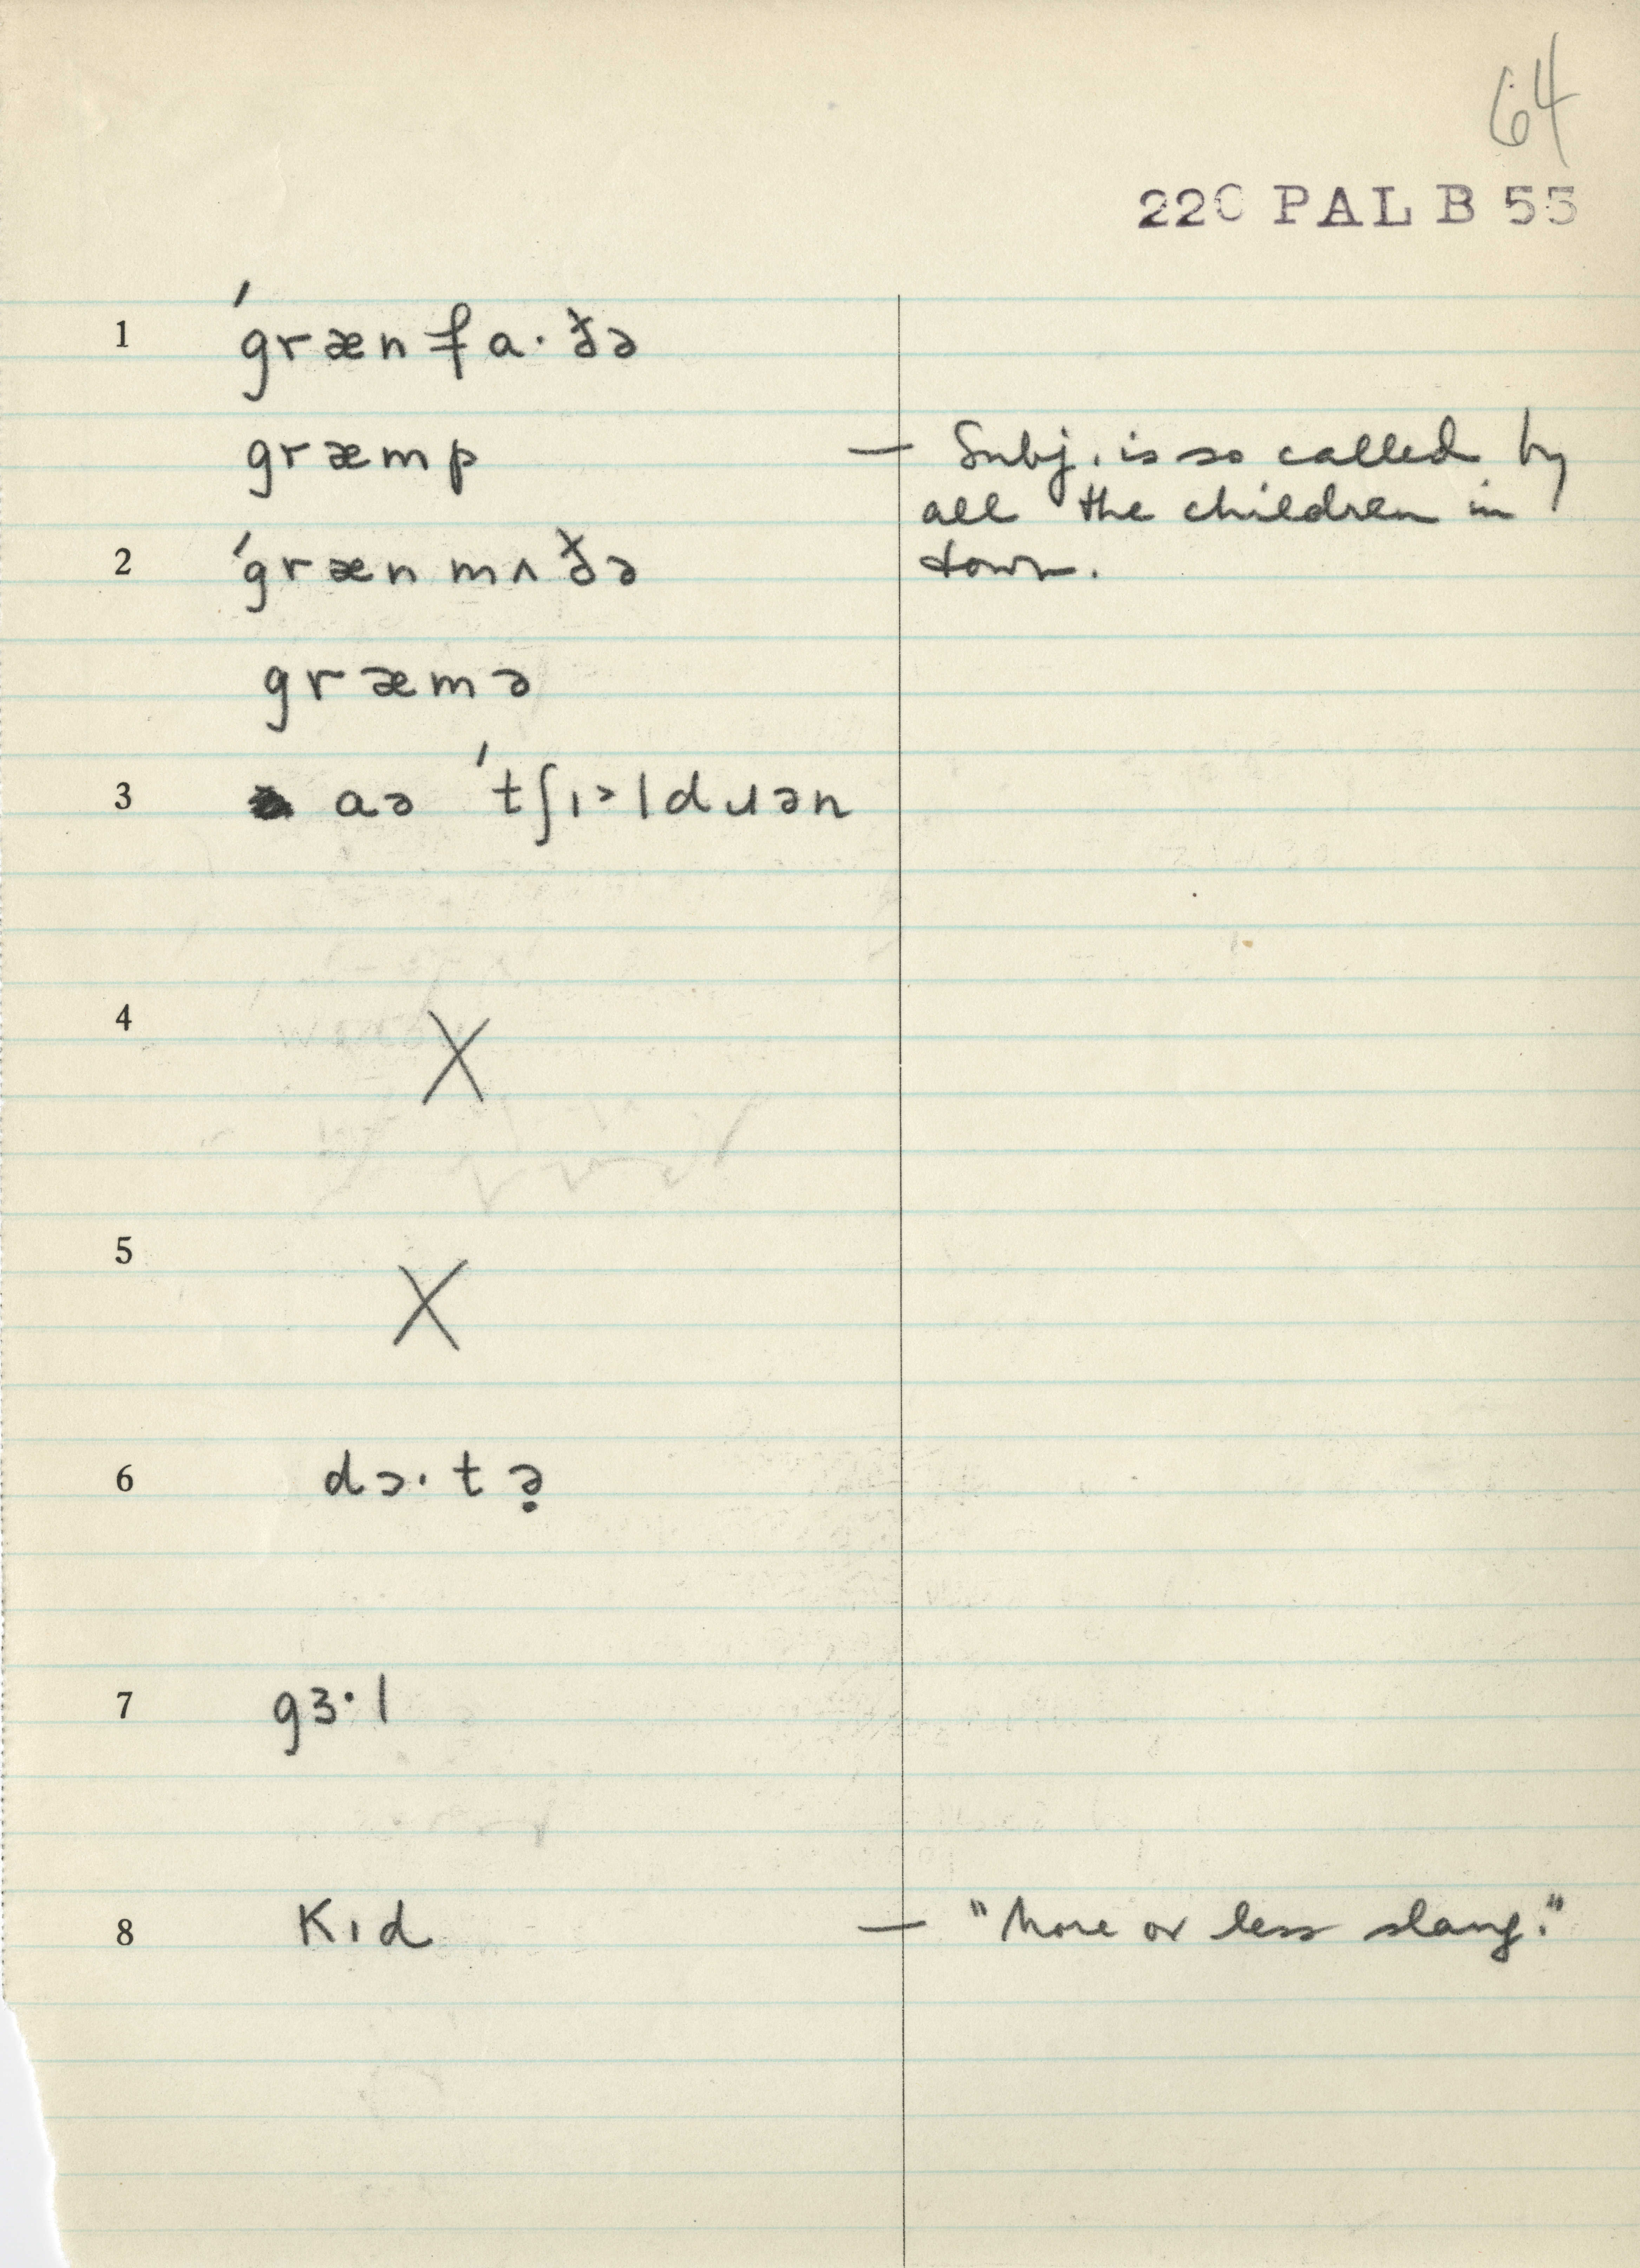 64
220 PAL B 55
1 ˈgrænfa·ðə
græmp — Subj. is so called by
all the children in
2 ˈgrænmʌðə town.
græmə
3 aə ˈtʃɪ˃ldɹən
4 X
5 X
6 dɔ·tə̣
7 gɜ·l
8 Kɪd — "More or less slang."